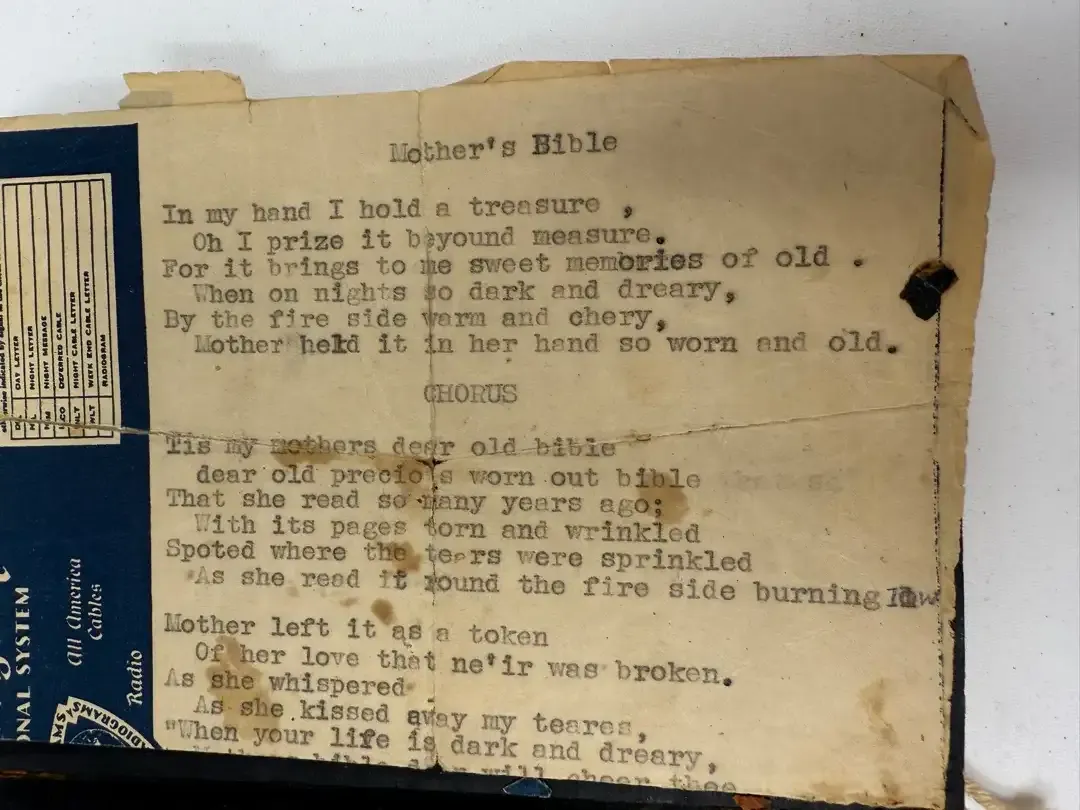 Mother's Bible
In my hand I hold a treasure ,
Oh I prize it beyound measure.
For it brings to me sweet memories of old .
When on nights so dark and dreary,
By the fire side warm and chery,
Mother held it in her hand so worn and old.
CHORUS
Tis my mothers dear old bible
dear old precious worn out bible
That she read so many years ago;
With its pages torn and wrinkled
Spoted where the tears were sprinkled
As she read it round the fire side burning low
Mother left it as a token
Of her love that ne'ir was broken.
As she whispered
As she kissed away my teares,
"When your life is dark and dreary,
bible dear will cheer thee
DAY LETTER
NL NIGHT LETTER
NM NIGHT MESSAGE
LCO DEFERRED CABLE
NLT NIGHT CABLE LETTER
WLT WEEK END CABLE LETTER
RADIOGRAM
NAL SYSTEM
All America
Cables
Radio
RADIOGRAMS